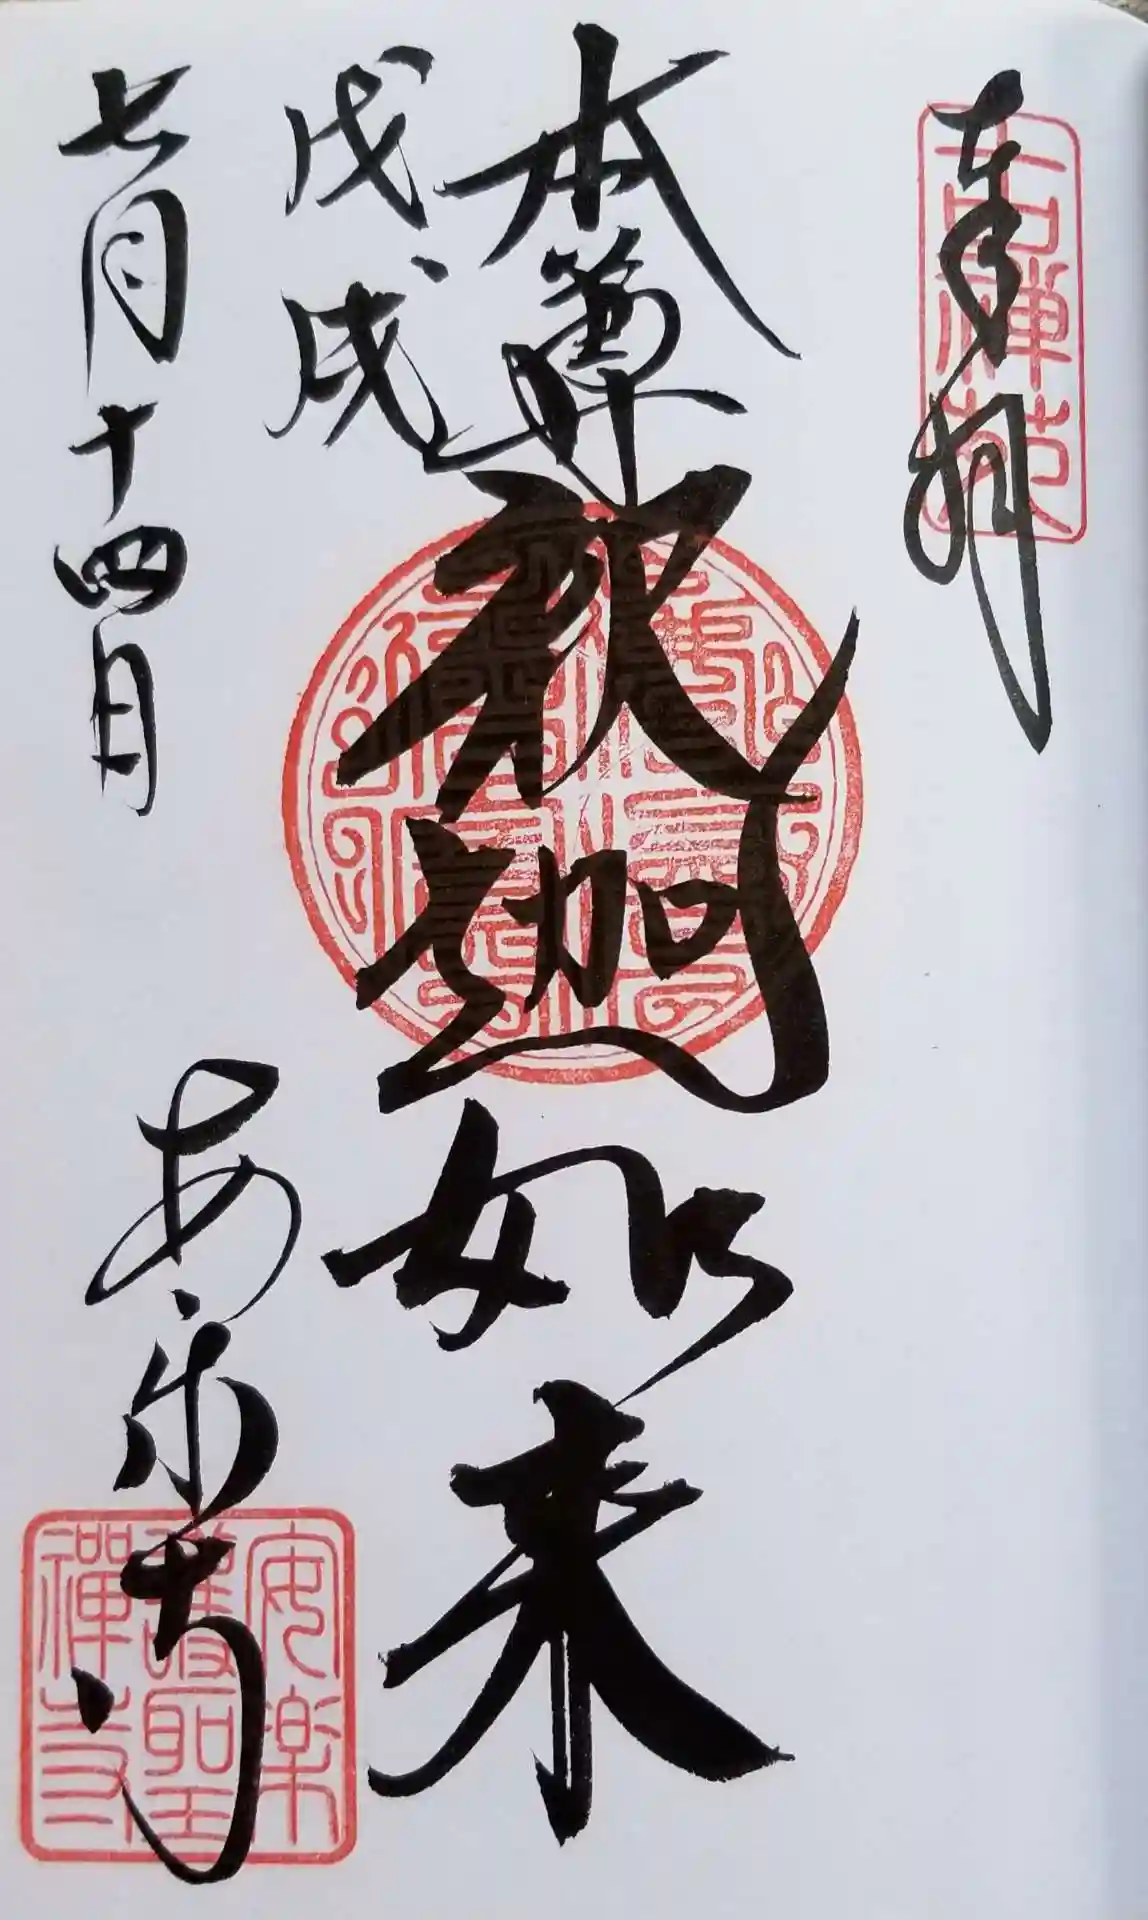 奉拝
古禅苑
本尊 釈迦如来
戊戌
七月十四日
安楽寺
安楽
護聖
禅寺